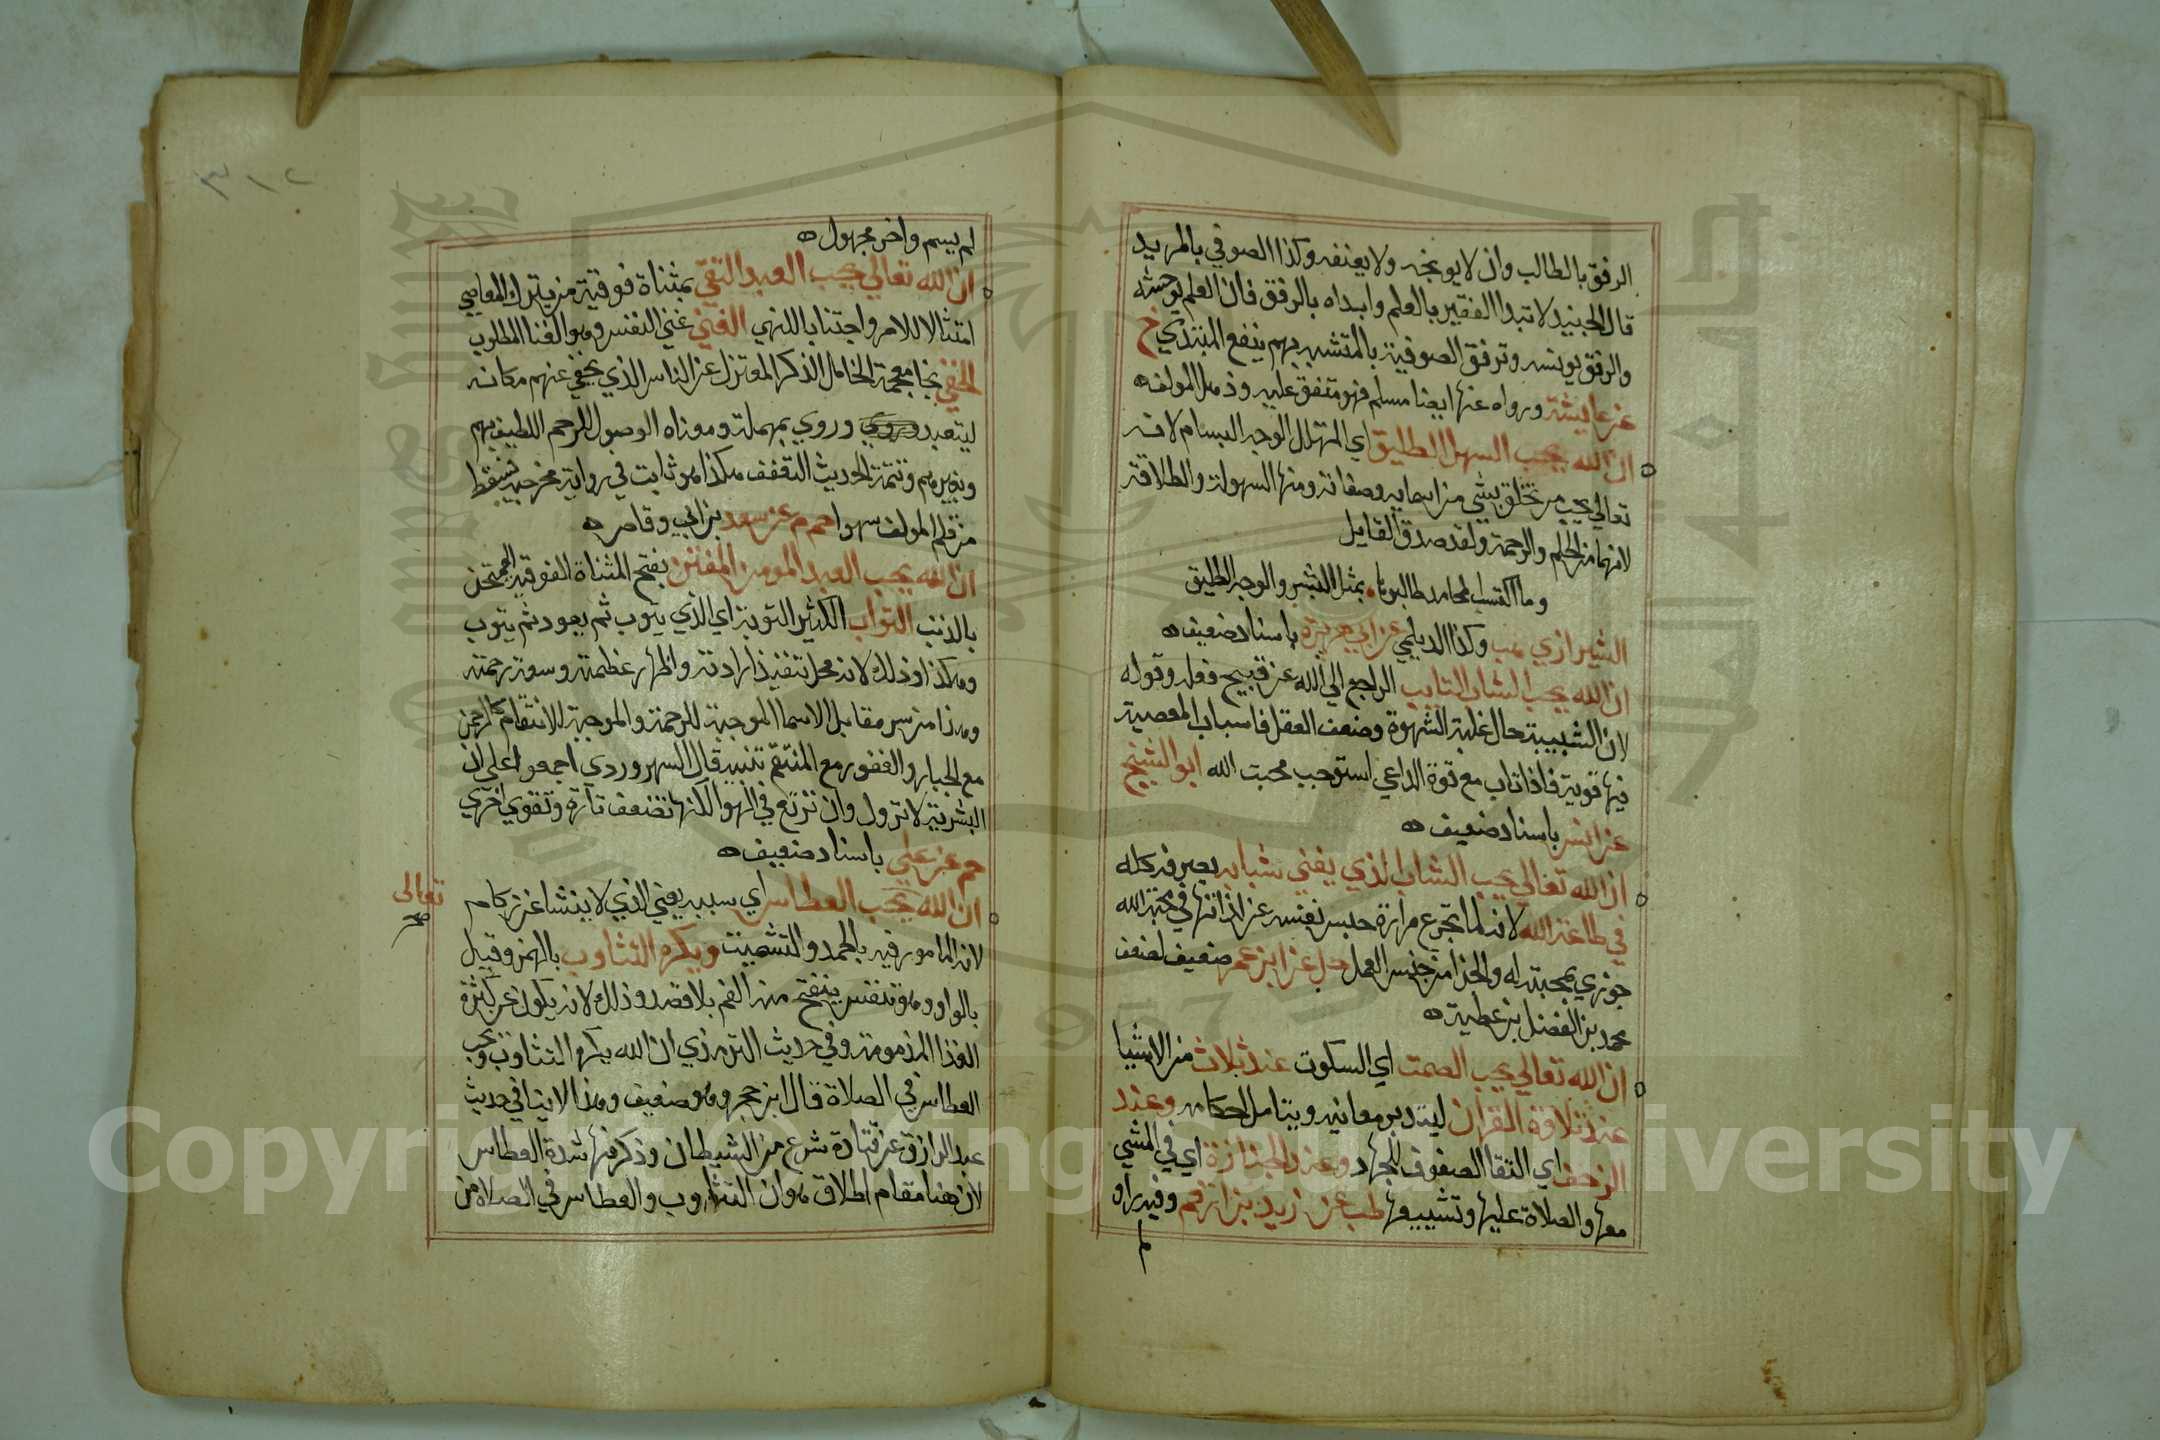 الرفق بالطالب وان لا يوبخه ولا يعنفه وكذا الصوفي بالمريد
قال الجنيد لا تبدا الفقير بالعلم وابداه بالرفق فان العلم يوحشه
والرفق يونسه وترفق الصوفية بالمتشبه بهم ينفع المبتدي خ
عن عايشة ورواه عنها ايضا مسلم فهو متفق عليه وذهل المولف ه
ان الله يحب السهل الطليق اي المتهلل الوجه البسام لانه
تعالي يحب من تخلق بشي من اسمايه وصفاته ومنها السهولة والطلاقة
لانهما من الحلم والرحمة ولقد صدق القايل
وما اكتسب المحامد طالبوها بمثل البشر والوجه الطليق
الشيرازي هب وكذا الديلمي عن ابي هريرة باسناد ضعيف ه
ان الله يحب الشاب التايب الراجع الي الله عن قبيح فعله وقوله
لان الشبيبة حال غلبة الشهوة وضعف العقل فاسباب المعصية
فيها قوية فاذا تاب مع قوة الداعي استوجب محبت الله ابو الشيخ
عن انس باسناد ضعيف ه
ان الله تعالي يحب الشاب الذي يفني شبابه يصرفه كله
في طاعة الله لانه لما تجرع مرارة حبس نفسه عن لذاتها في محبة الله
جوزي بمحبته له والجزا من جنس العمل حل عن ابن عمر ضعيف لضعف
محمد بن الفضل بن عطية ه
ان الله تعالي يحب الصمت اي السكوت عند ثلاث من الاشيا
عند تلاوة القران ليتدبر معانيه ويتامل احكامه وعند
الزحف اي التقا الصفوف للجهاد وعند الجنازة اي في المشي
معها والصلاة عليها وتشييعها طب عن زيد بن ارقم وفيه راو
لم
٣١٢
لم يسم واخر مجهول ه
ان الله تعالي يحب العبد التقي بمثناة فوقية من يترك المعاصي
امتثالا للامر واجتنابا للنهي الغني غني النفس وهو الغنا المطلوب
الخفي بخا معجمة الخامل الذكر المعتزل عن الناس الذي يخفي عنهم مكانه
ليتعبد وروي بمهملة ومعناه الوصول للرحم اللطيف بهم
وبغيرهم وتتمة الحديث التعفف هكذا هو ثابت في رواية مخرجيه فسقط
من قلم المولف سهوا حم م عن سعد بن ابي وقاص ه
ان الله يحب العبد المومن المفتن بفتح المثناة الفوقية الممتحن
بالذنب التواب الكثير التوبة اي الذي يتوب ثم يعود ثم يتوب
وهكذا وذلك لانه محل تنفيذ ارادته واظهار عظمته وسعة رحمته
وهذا من سر مقابل الاسما الموجبة للرحمة والموجبة للانتقام كالرحمن
مع الجبار والغفور مع المنتقم تنبيه قال السهروردي اجمعوا علي ان
البشرية لا تزول وان تربع في الهوا لكنها تضعف تارة وتقوي اخري
حم عن علي باسناد ضعيف ه
ان الله يحب العطاس اي سببه يعني الذي لا ينشا عن زكام
تعالى
صح
لانه المامور فيه بالحمد والتشميت ويكره التثاوب بالهمز وقيل
بالواو وهو تنفس ينفتح منه الفم بلا قصد وذلك لانه يكون عن كثرة
الغذا المذمومة وفي حديث الترمذي ان الله يكره التثاوب ويحب
العطاس في الصلاة قال ابن حجر وهو ضعيف وهذا لا ينافي حديث
عبد الرازق عن قتادة شرع من الشيطان وذكر منها شدة العطاس
لان هنا مقام اطلاق هو ان التثاوب والعطاس في الصلاة من